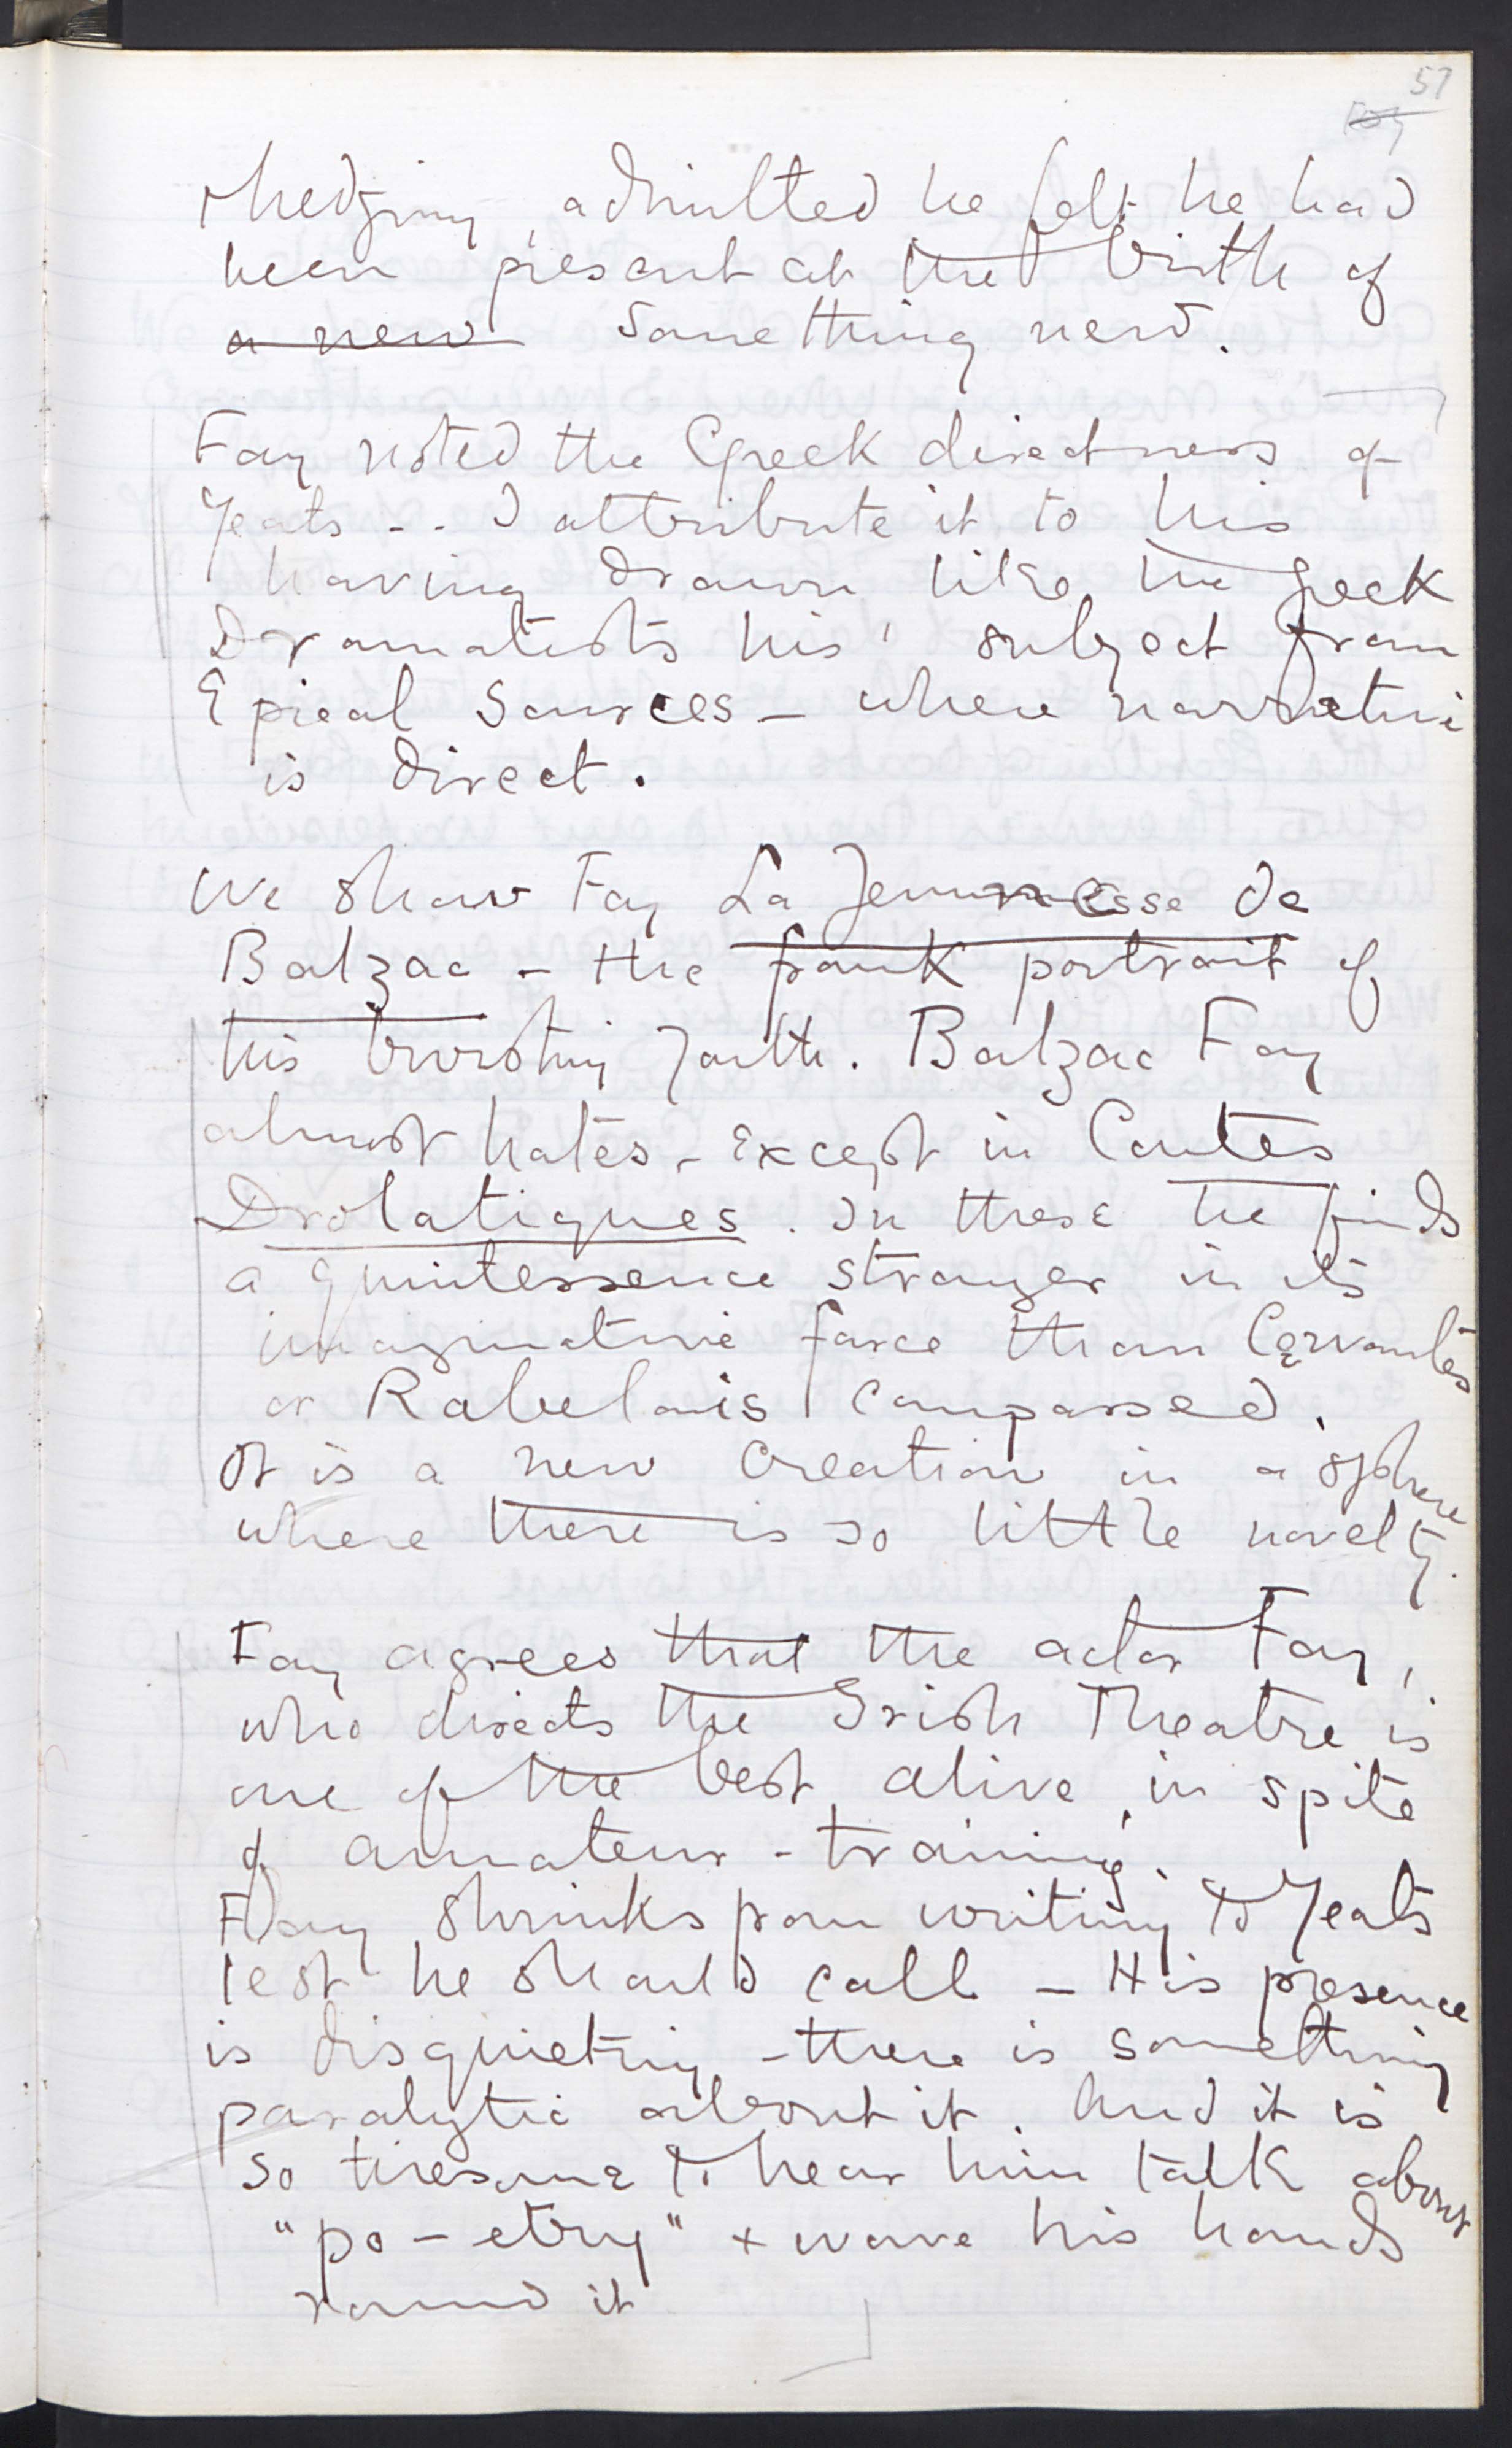 57
hedging, admitted he felt he had
been present at the birth of
a new something new.
Fay noted the Greek directness of
Yeats - - I attribute it to his
having drawn like the Greek
Dramatists his subject from
Epical Sources - where narrative
is direct.
We show Fay La Jeunesse de
Balzac - the frank portrait of
his bursting youth. Balzac Fay
almost hates - except in Contes
Drolatiques. In these he finds
a quintessence stronger in its
imaginative farce than Cervantes
or Rabelais compassed.
It is a new creation in a sphere
where there is so little novelty.
Fay agrees that the actor Fay,
who directs the Irish Theatre is
one of the best alive in spite
of amateur-training.
Fay shrinks from writing to Yeats
lest he should call - His presence
is disquieting - there is something
paralytic about it. And it is
so tiresome to hear him talk about
"po-etry" + wave his hands
round it